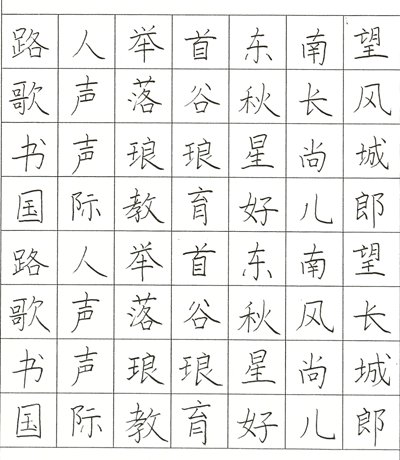 路人举首东南望
歌声落谷秋长风
书声琅琅星尚城
国际教育好儿郎
路人举首东南望
歌声落谷秋风长
书声琅琅星尚城
国际教育好儿郎